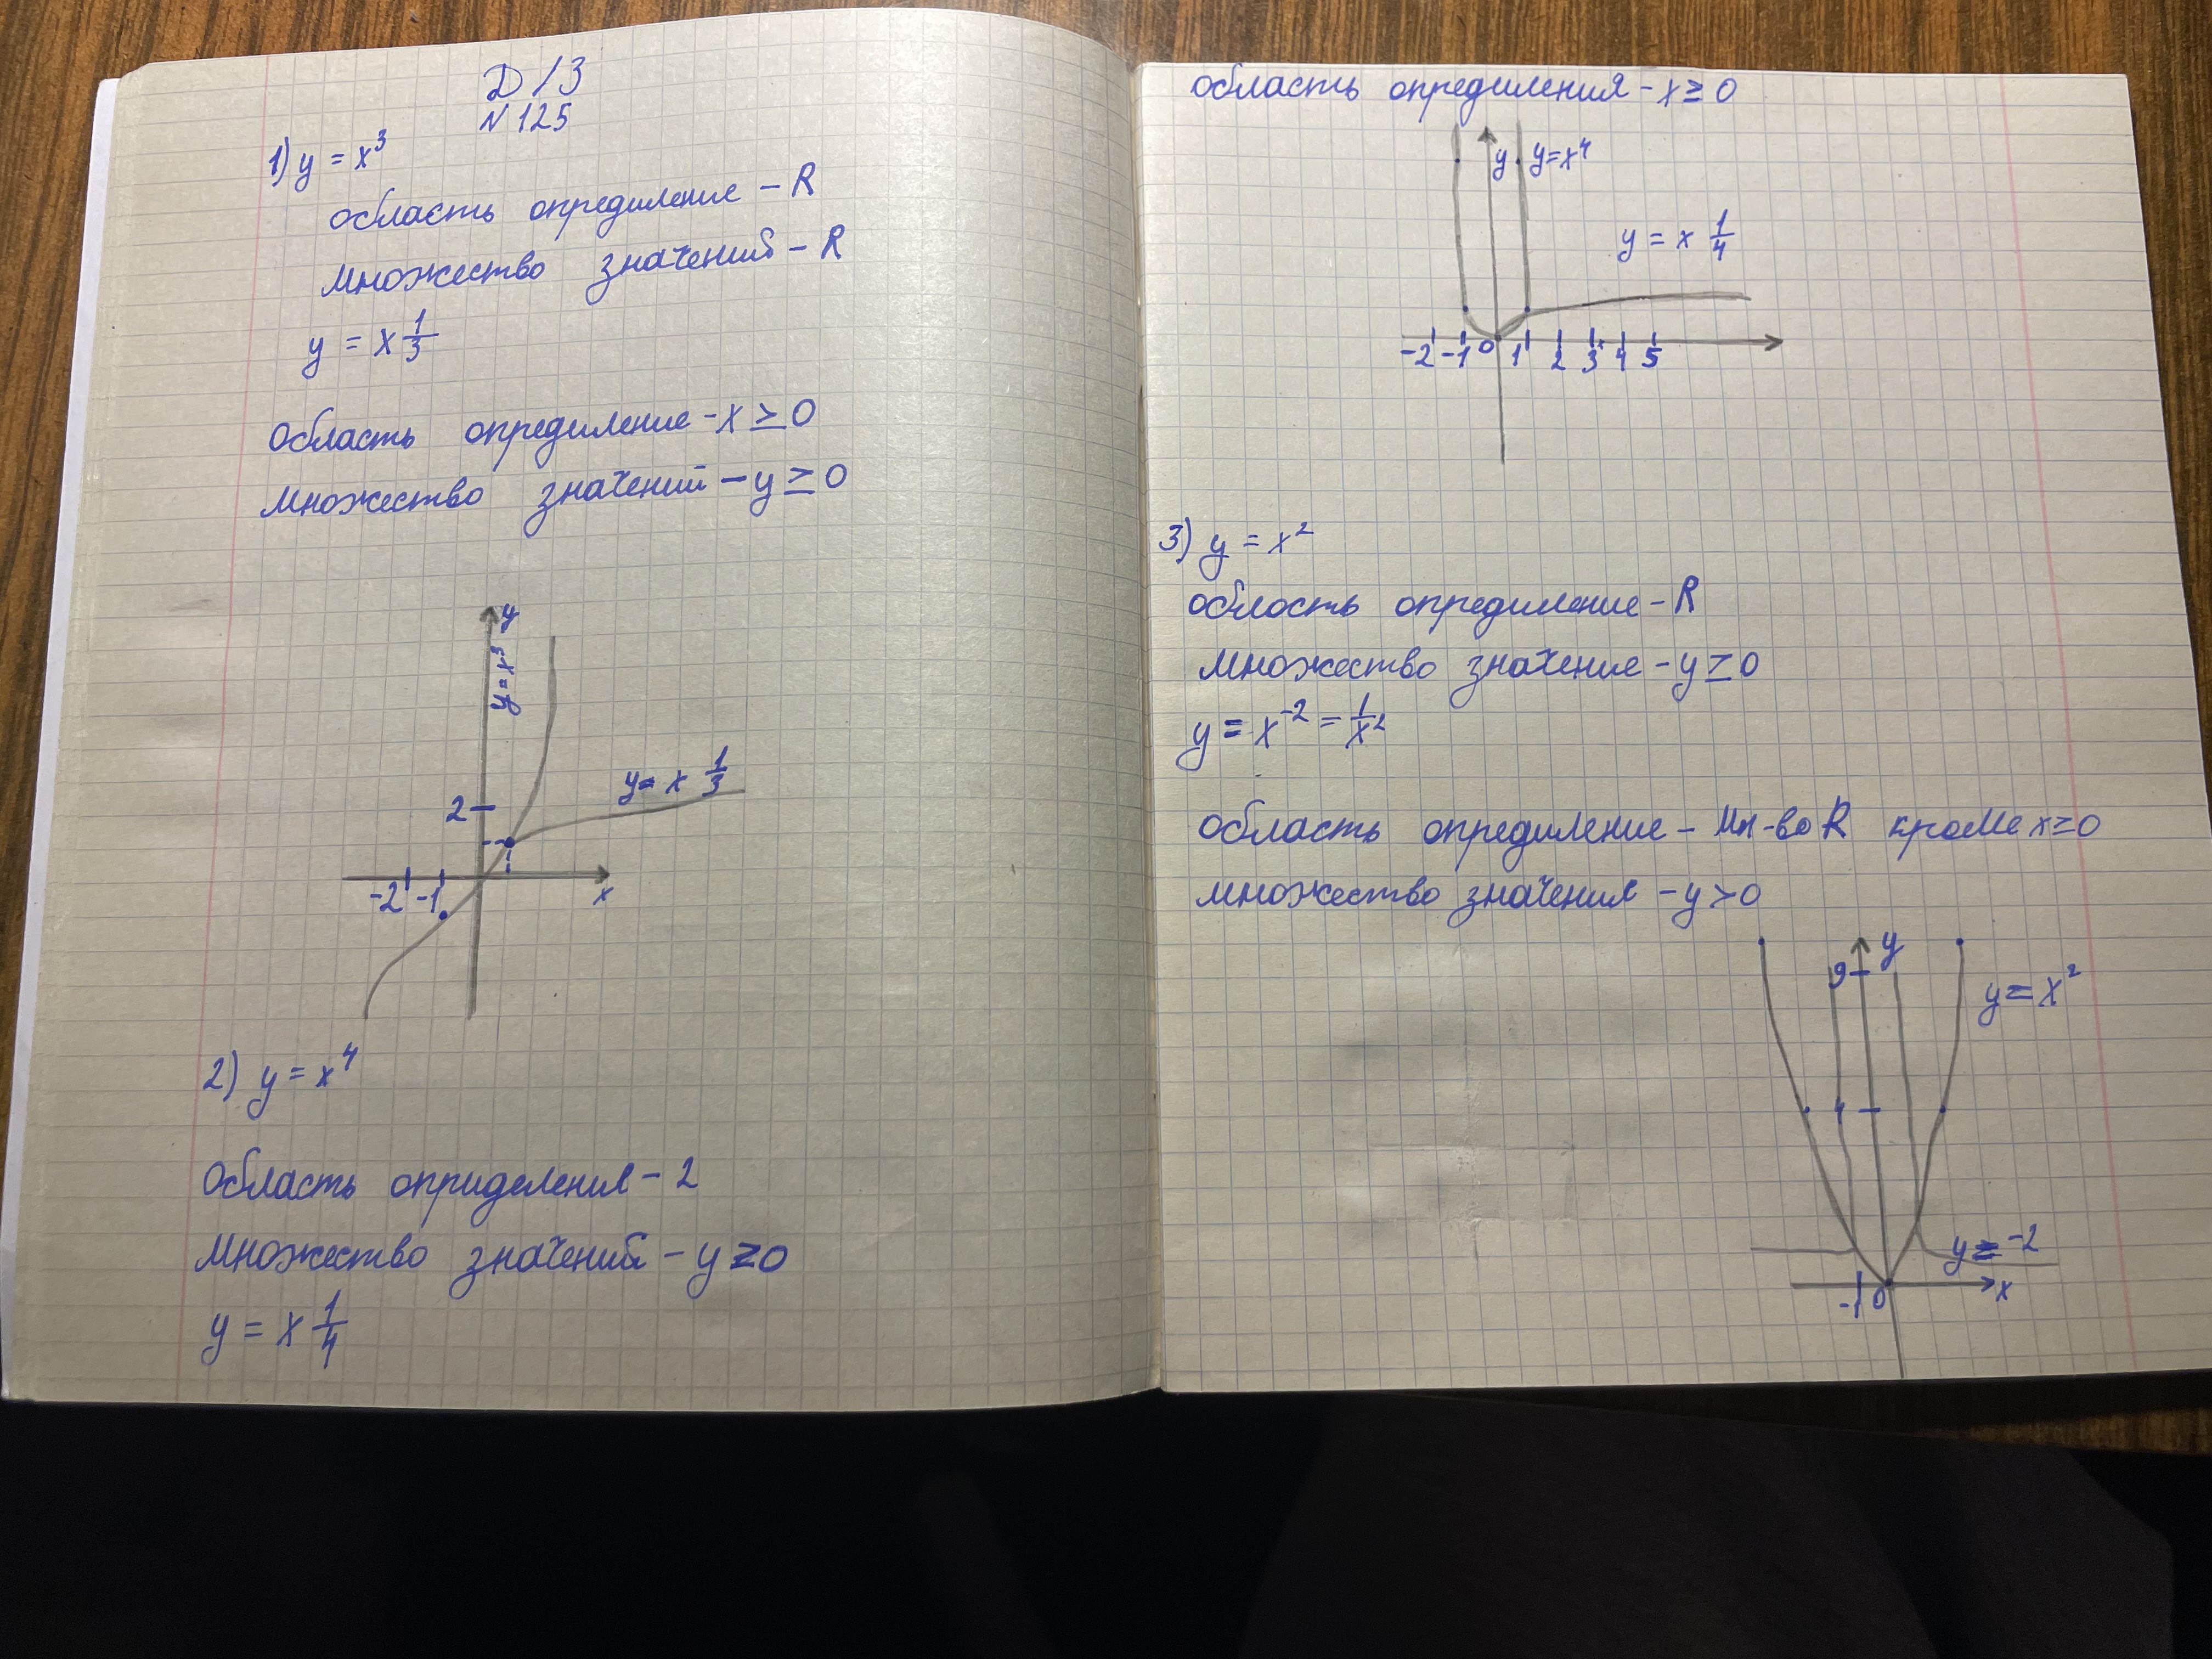 Д/З
N 125
1) y = x³
область опредиление – R
множество значений – R
y = x 1/3
Область опредиление - x ≥ 0
множество значений – y ≥ 0
y
y = x³
y = x 1/3
2
1
-2 -1
x
2) y = x⁴
Область определения – 2
множество значений – y ≥ 0
y = x 1/4
область опредиления – x ≥ 0
y y=x⁴
y = x 1/4
-2 -1 0 1 2 3 4 5
3) y = x²
область опредиление – R
множество значение – y ≥ 0
y = x⁻² = 1/x²
область опредиление – мн-во R кроме x=0
множество значения – y > 0
y
9
y = x²
4
y = ⁻²
-1 0 x